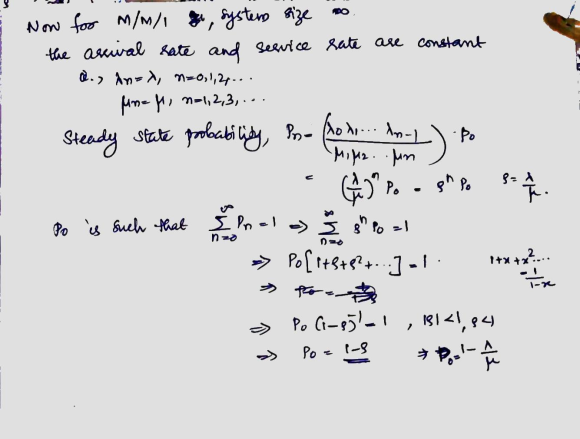 Now for M/M/1, system size ∞
the arrival rate and service rate are constant
i.e., λn = λ, n=0,1,2,...
μn = μ, n=1,2,3,...
Steady state probability, Pn = (λ0 λ1 ... λn-1 / μ1 μ2 .. μn) · P0
= (λ/μ)^n P0 = ρ^n P0 ρ = λ/μ.
P0 is such that ∑_{n=0}^{∞} Pn = 1 ⇒ ∑_{n=0}^{∞} ρ^n P0 = 1
⇒ P0 [1+ρ+ρ²+...] = 1. 1+x+x²... = 1/(1-x)
⇒ P0 (1-ρ)^-1 = 1, |ρ|<1, ρ<1
⇒ P0 = 1-ρ ⇒ P0 = 1 - λ/μ